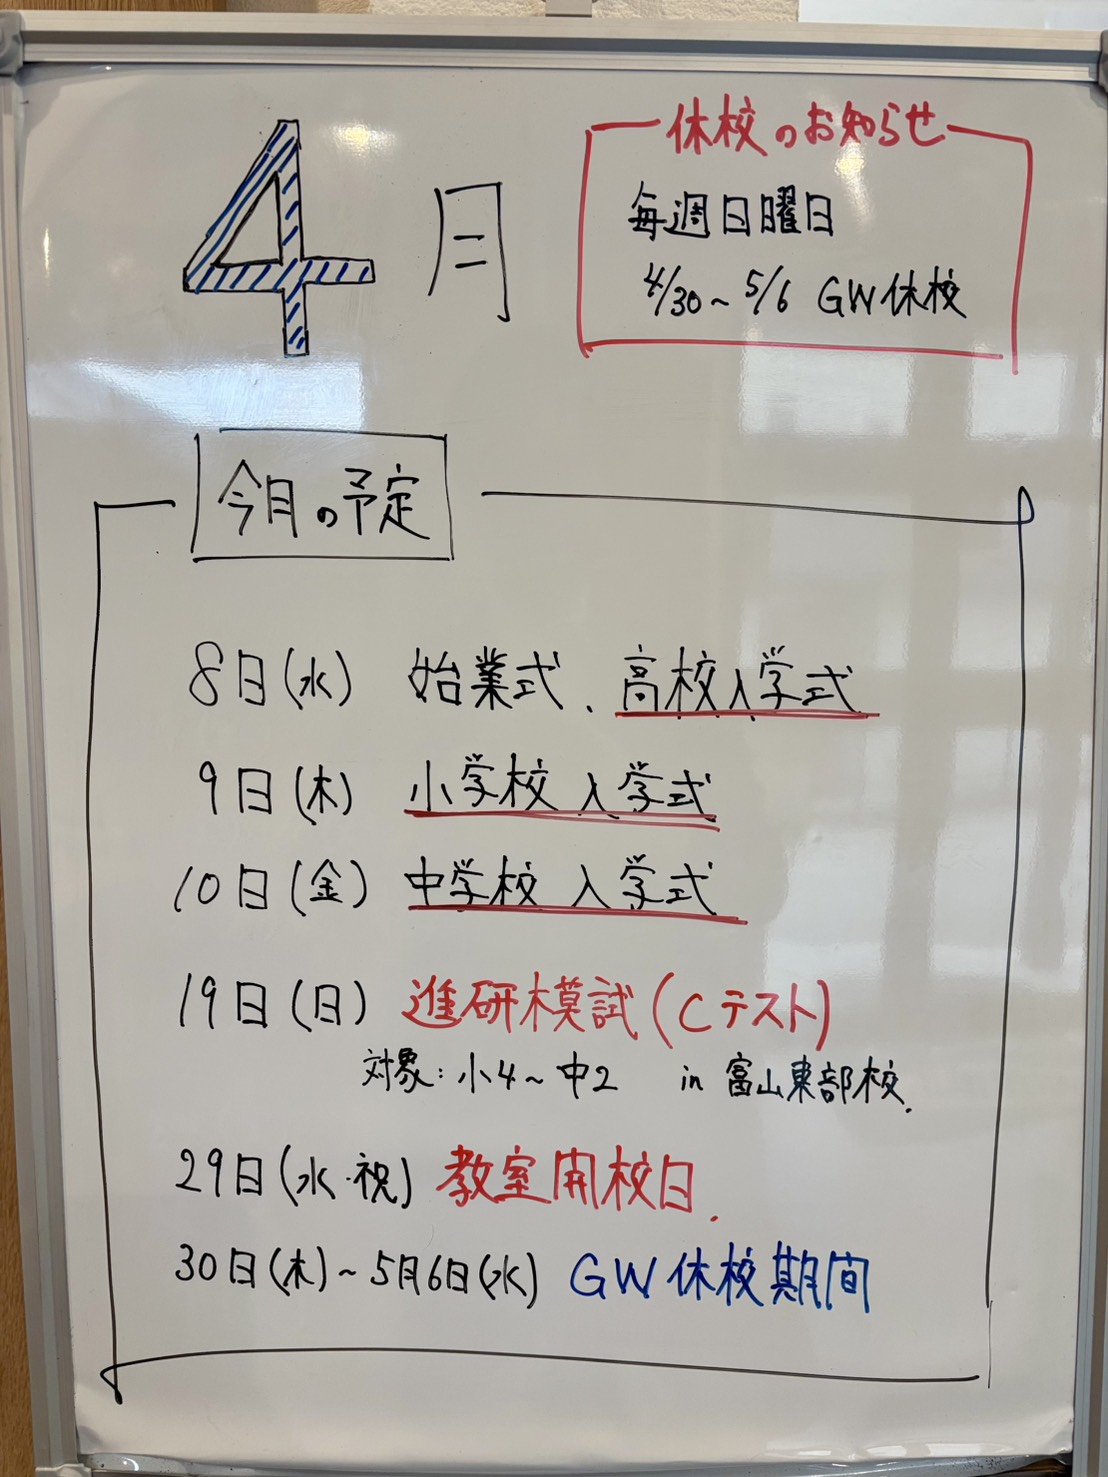 4月
休校のお知らせ
毎週日曜日
4/30~5/6 GW休校
今月の予定
8日(水) 始業式、高校入学式
9日(木) 小学校入学式
10日(金) 中学校入学式
19日(日) 進研模試(Cテスト)
対象:小4~中2 in 富山東部校.
29日(水・祝) 教室開校日.
30日(木)~5月6日(水) GW休校期間